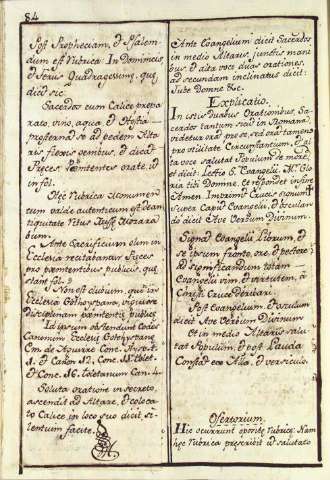 84
Post Propheciam, et Psalmum est Rubrica: In Dominicis,
et Feriis Quadragesimę, quę
dicit sic.
Sacerdos cum Calice prepa
rato vino, aqua, et Hostia
prosternat se ad pedem Alta
ris flexis genibus, et dicat
Preces Pęnitentes orate, id
in fol.
Hęc Rubrica monumen
tum valde autenticum est de an
tiquitate Ritus Missę Mozara
bum.
Ante Sacrificium olim in
Ecclesia recitabantur Preces
pro pęnitentibus publicis, quę
stant fol.
Non est dubium, quod in
Ecclesia Gothohyspana, viguisset
disciplinam pęnitentis publicę
Id ipsum ostendunt Codex
Canonum Ecclesię Gothohyspanę
Cm. de Aguirre Conc.
1. et Canon 12. Conc. Tolet.
et Conc. 16. Toletanum Can. 4.
Soluta oratione in secreto,
ascendit ad Altare, et coloca
to Calice, in loco suo dicit si-
lentium facite.
Ante Evangelium dicit Sacerdos
in medio Altaris, junctis mani
bus, et alta voce duas orationes,
ad secundam inclinatus dicit:
Jube Domne &c.
Explicatio.
In istis duabus Orationibus, Sa-
cerdos tantum sicut in Romana,
videtur ora pro se, sed ora tamen
pro utilitate Circunstantium, et al
ta voce salutat Populum de more,
et dicit: Lectio S. Evangelii. Rx. Glo
ria tibi Domne, et respondet in fine
Amen. Imprimit Crucis signum
super Caput Evangelii, et oscular-
do dicit Ave Verbum Divinum.
Signat Evangelii Librum, et
se ipsum fronte, ore, et pectore:
ad significandum totam
Evangelii vim, et virtutem, à
Christi Cruce derivari.
Post Evangelium osculum
dicit Ave Verbum Divinum
et in medio Altaris salu
tat Populum, et post Lauda
Cantat
Ofertorium.
Hic ocurrunt aposite Rubricę: Nam
hęc Rubrica prescribit id salutato